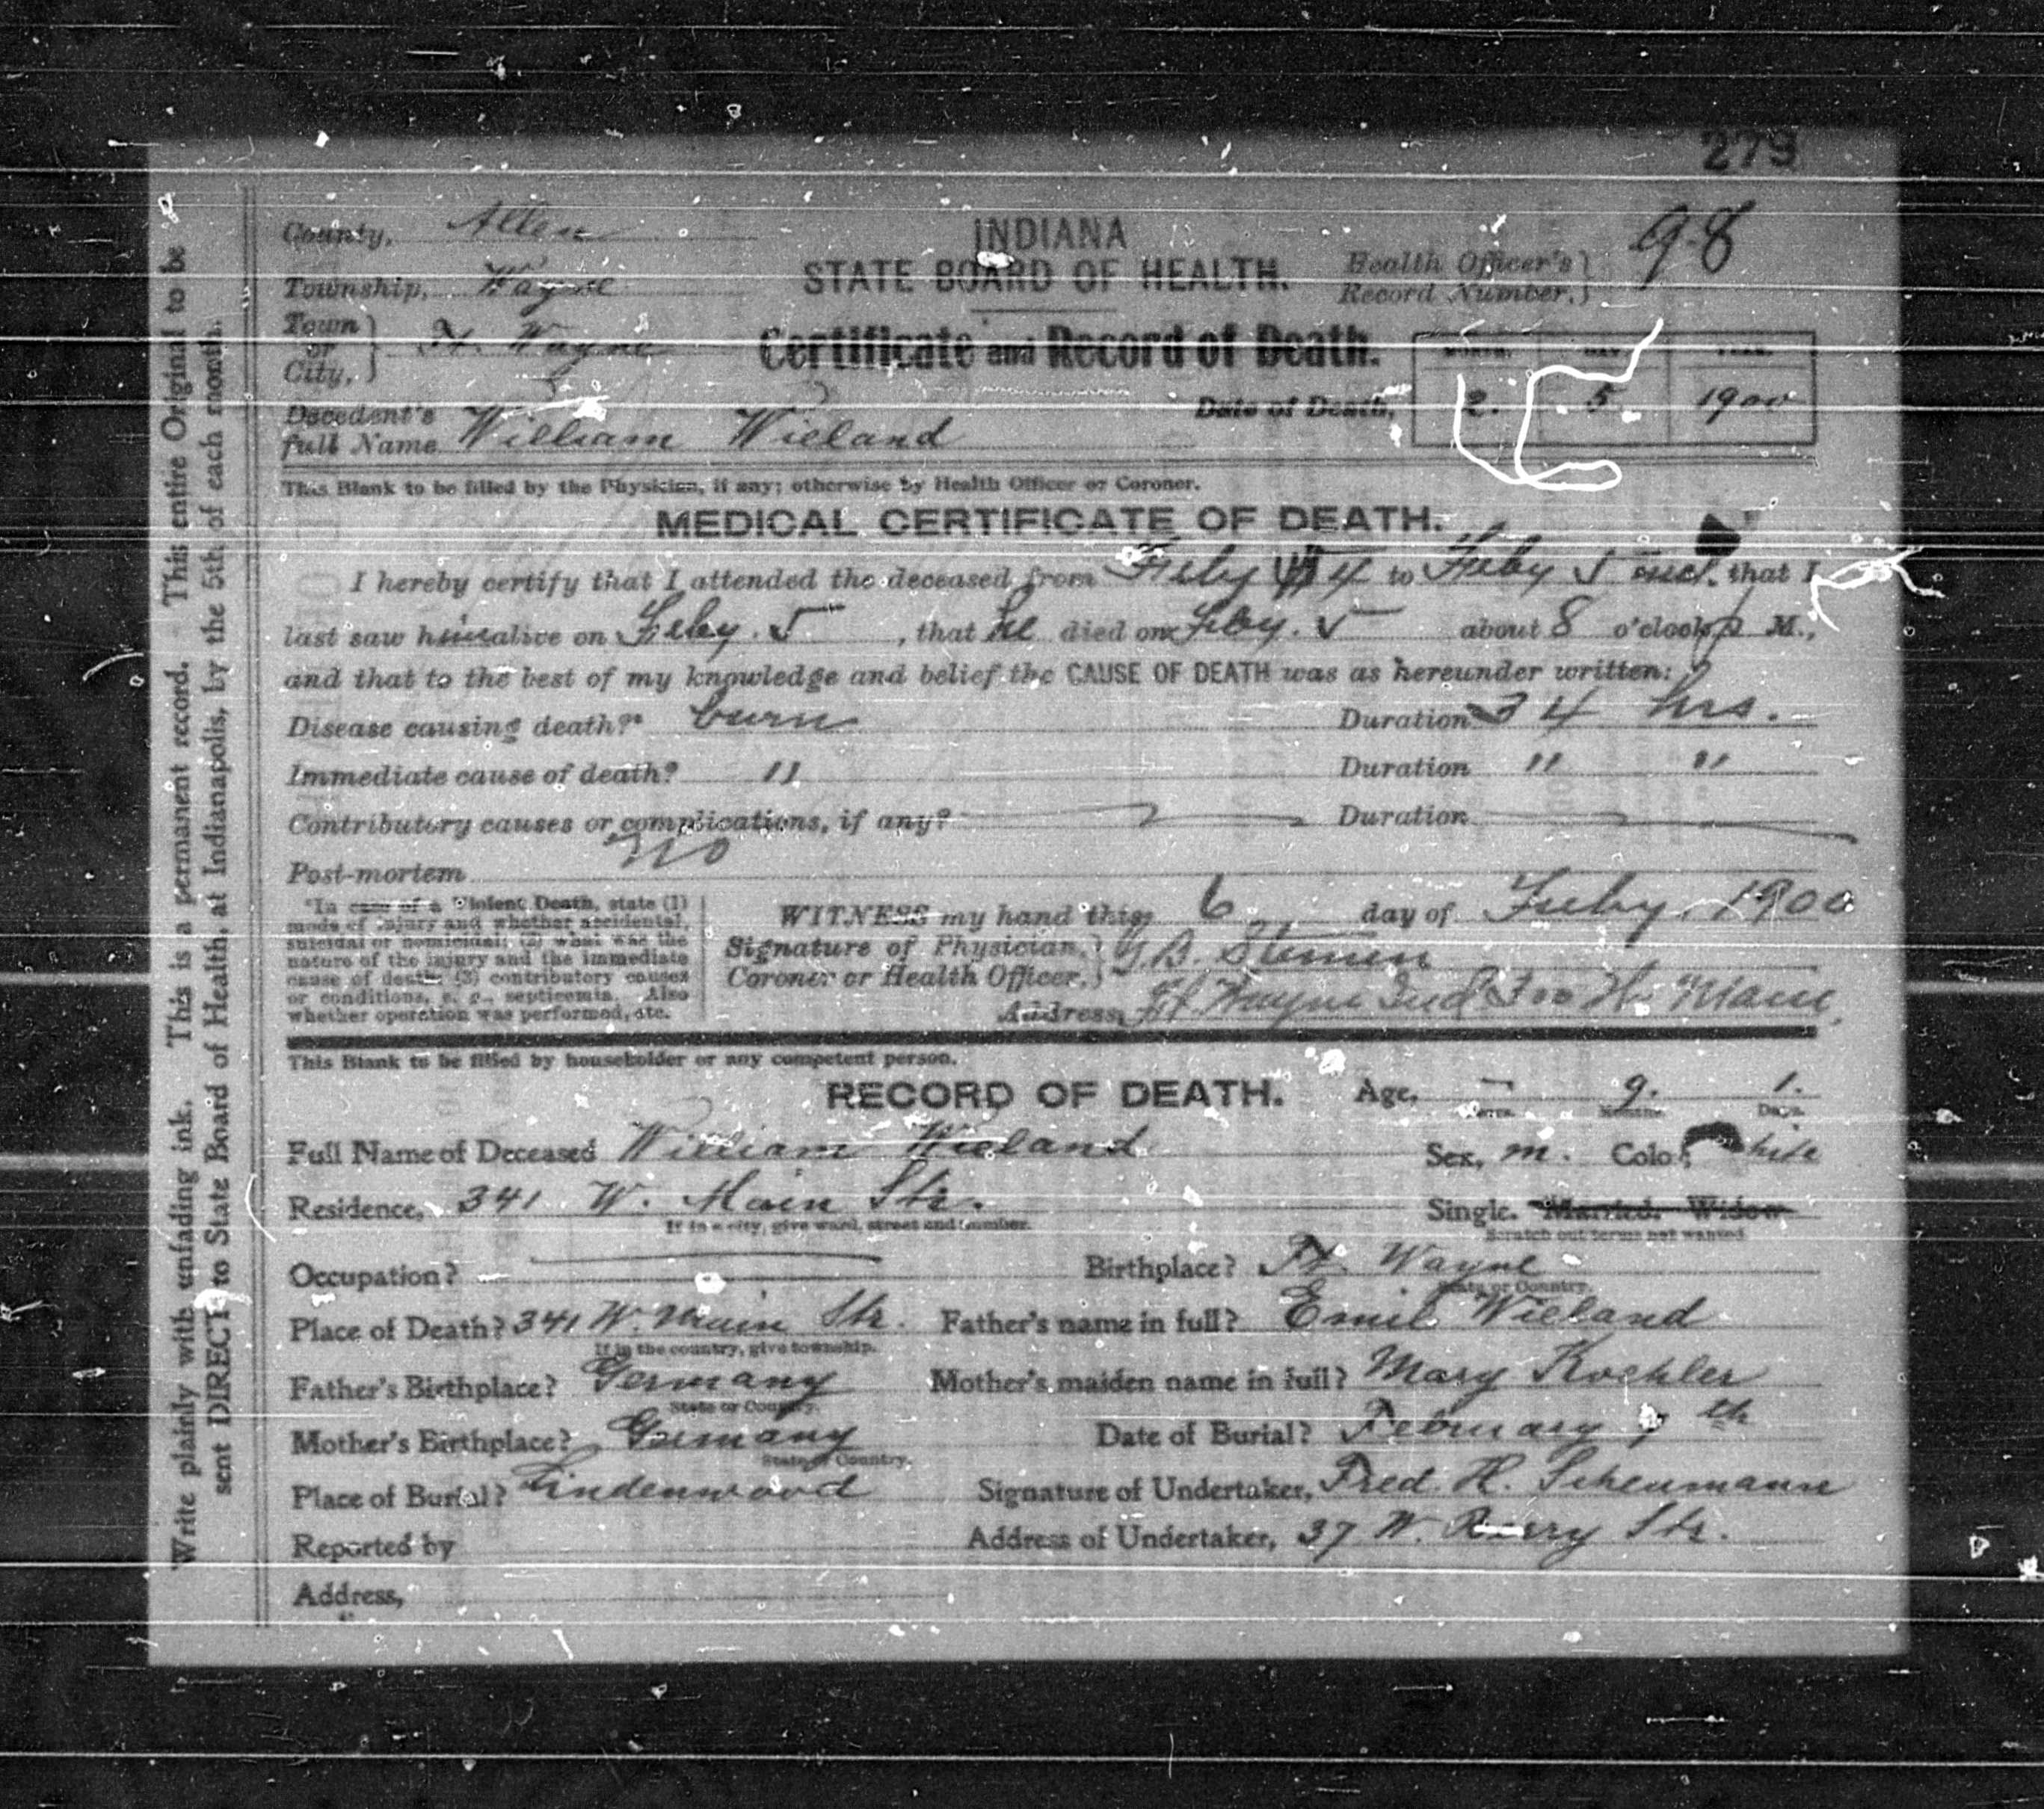 279
County, Allen
INDIANA
STATE BOARD OF HEALTH.
Health Officer's } 98
Record Number, }
Township, Wayne
Town or City, } Ft. Wayne
Certificate and Record of Death.
MONTH. DAY. YEAR.
Date of Death, 2. 5 1900
Decedent's full Name William Wieland
This Blank to be filled by the Physician, if any; otherwise by Health Officer or Coroner.
MEDICAL CERTIFICATE OF DEATH.
I hereby certify that I attended the deceased from Feby 4 to Feby 5 incl. that I
last saw him alive on Feby. 5, that he died on Feby. 5 about 8 o'clock P M.,
and that to the best of my knowledge and belief the CAUSE OF DEATH was as hereunder written:
Disease causing death?* burn Duration 34 hrs.
Immediate cause of death? " Duration " "
Contributory causes or complications, if any? Duration
Post-mortem no
*In case of a Violent Death, state (1)
mode of injury and whether accidental,
suicidal or homicidal; (2) what was the
nature of the injury and the immediate
cause of death; (3) contributory causes
or conditions, e. g., septicemia. Also
whether operation was performed, etc.
WITNESS my hand this 6 day of Feby. 1900
Signature of Physician, } G.B. Stemen
Coroner or Health Officer, }
Address, Ft. Wayne Ind
This Blank to be filled by householder or any competent person.
RECORD OF DEATH.
Age, – 9. 1.
Years. Months. Days.
Full Name of Deceased William Wieland Sex, m. Color, White
Residence, 341 W. Main Str. Single. Married. Widow
If in a city, give ward, street and number. Scratch out terms not wanted.
Occupation? Birthplace? Ft. Wayne
State or Country.
Place of Death? 341 W. Main Str. Father's name in full? Emil Wieland
If in the country, give township.
Father's Birthplace? Germany Mother's maiden name in full? Mary Koehler
State or Country.
Mother's Birthplace? Germany Date of Burial? February 7th
State or Country.
Place of Burial? Lindenwood Signature of Undertaker, Fred. H. Scheumann
Reported by Address of Undertaker, 37 W. Berry Str.
Address,
Write plainly with unfading ink. This is a permanent record. This entire Original to be
sent DIRECT to State Board of Health, at Indianapolis, by the 5th of each month.